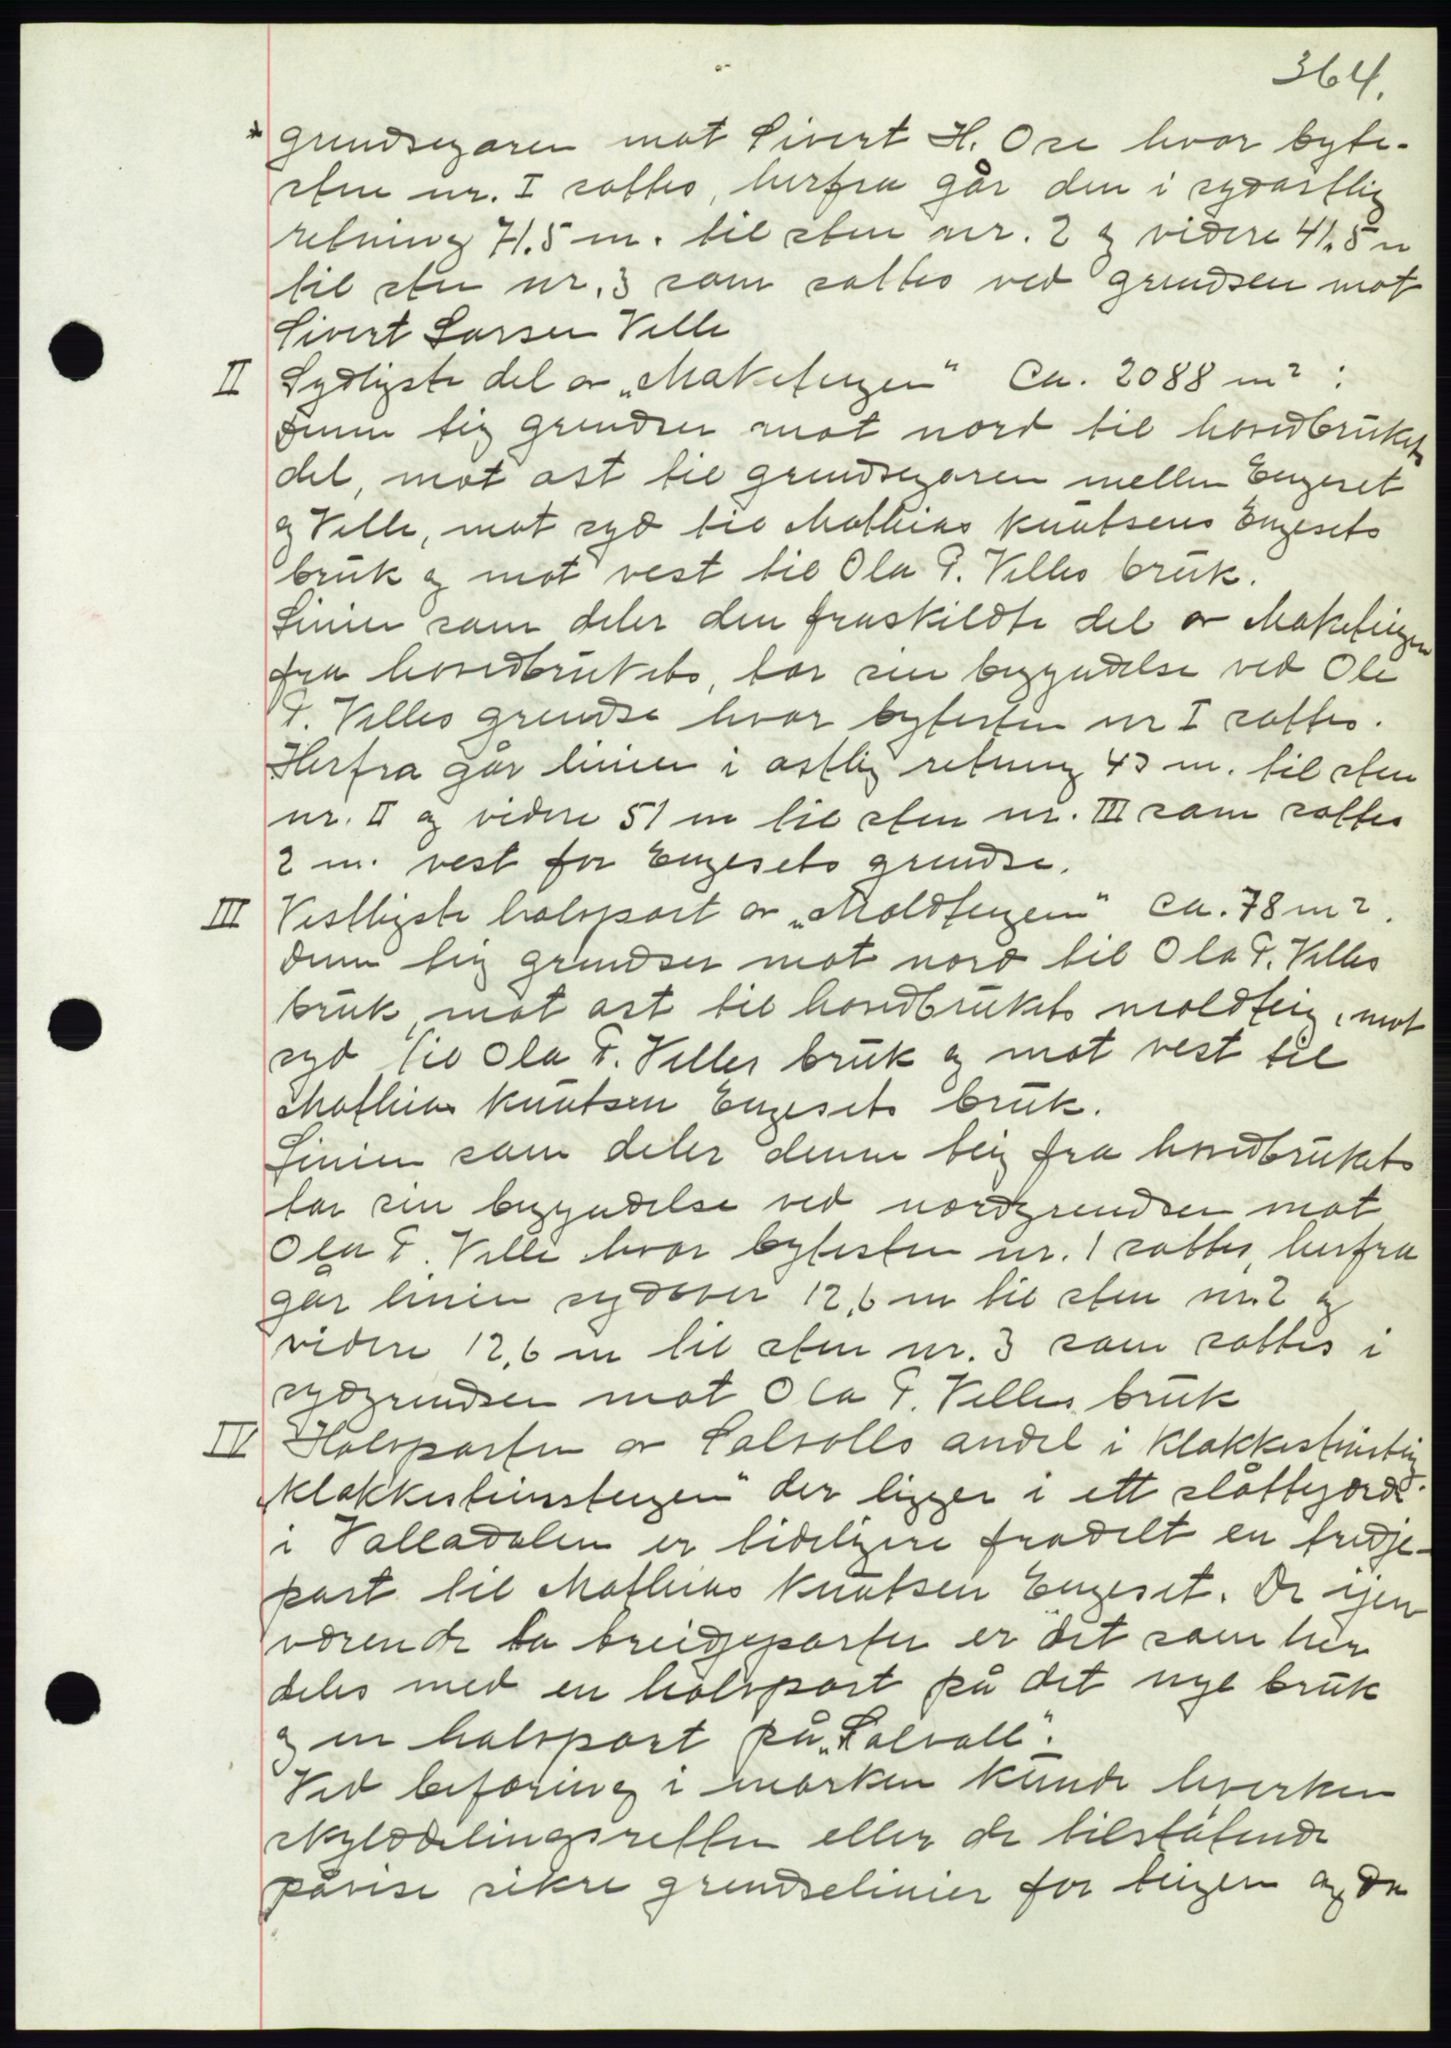 364.
* grundsegaren mot Sivert H. Ose hvor byte-
sten nr. I sattes, herfra går den i sydøstlig
retning 71.5 m. til sten nr. 2 og videre 41.5 m
til sten nr. 3 som sattes ved grundsen mot
Sivert Larsen Velle
II Sydligste del av „Maketeigen" Ca. 2088 m² :
denne teig grendser mot nord til hovedbrukets
del, mot øst til grendsegaren mellem Engeset
og Velle, mot syd til Mathias Knutsens Engesets
bruk og mot vest til Ola P. Velles bruk.
Linien som deler den fraskildte del av Maketeigen
fra hovedbrukets, tar sin begyndelse ved Ole
P. Velles grendse hvor bytesten nr I sattes.
Herfra går linien i østlig retning 43 m. til sten
nr. II og videre 51 m til sten nr. III som sattes
2 m. vest for Engesets grendse.
III Vestligste halvpart av „Moldteigen" Ca. 78 m².
denne teig grendser mot nord til Ola P. Velles
bruk, mot øst til hovedbrukets moldteig, mot
syd til Ola P. Velles bruk og mot vest til
Mathias Knutsen Engesets bruk.
Linien som deler denne teig fra hovedbrukets
tar sin begyndelse ved nordgrendsen mot
Ola P. Velle hvor bytesten nr. 1 sattes, herfra
går linien sydover 12,6 m til sten nr. 2 og
videre 12,6 m til sten nr. 3 som sattes i
sydgrendsen mot Ola P. Velles bruk
IV Halvparten av Salvolls andel i Klakkesteinsteig
„Klakkesteinsteigen" der ligger i ett slåttegjærde
i Valladalen er tideligere fradelt en tredje-
part til Mathias Knutsen Engeset. De igjen
værende to treidjeparter er det som her
deles med en halvpart på det nye bruk
og en halvpart på „Salvoll".
Ved befaring i marken kunde hverken
skylddelingsretten eller de tilstøtende
påvise sikre grendselinier for teigen og da